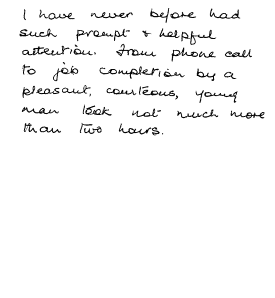 I have never before had
such prompt & helpful
attention. From phone call
to job completion by a
pleasant, courteous, young
man took not much more
than two hours.